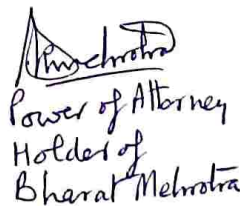 Power of Attorney
Holder of
Bharat Mehrotra